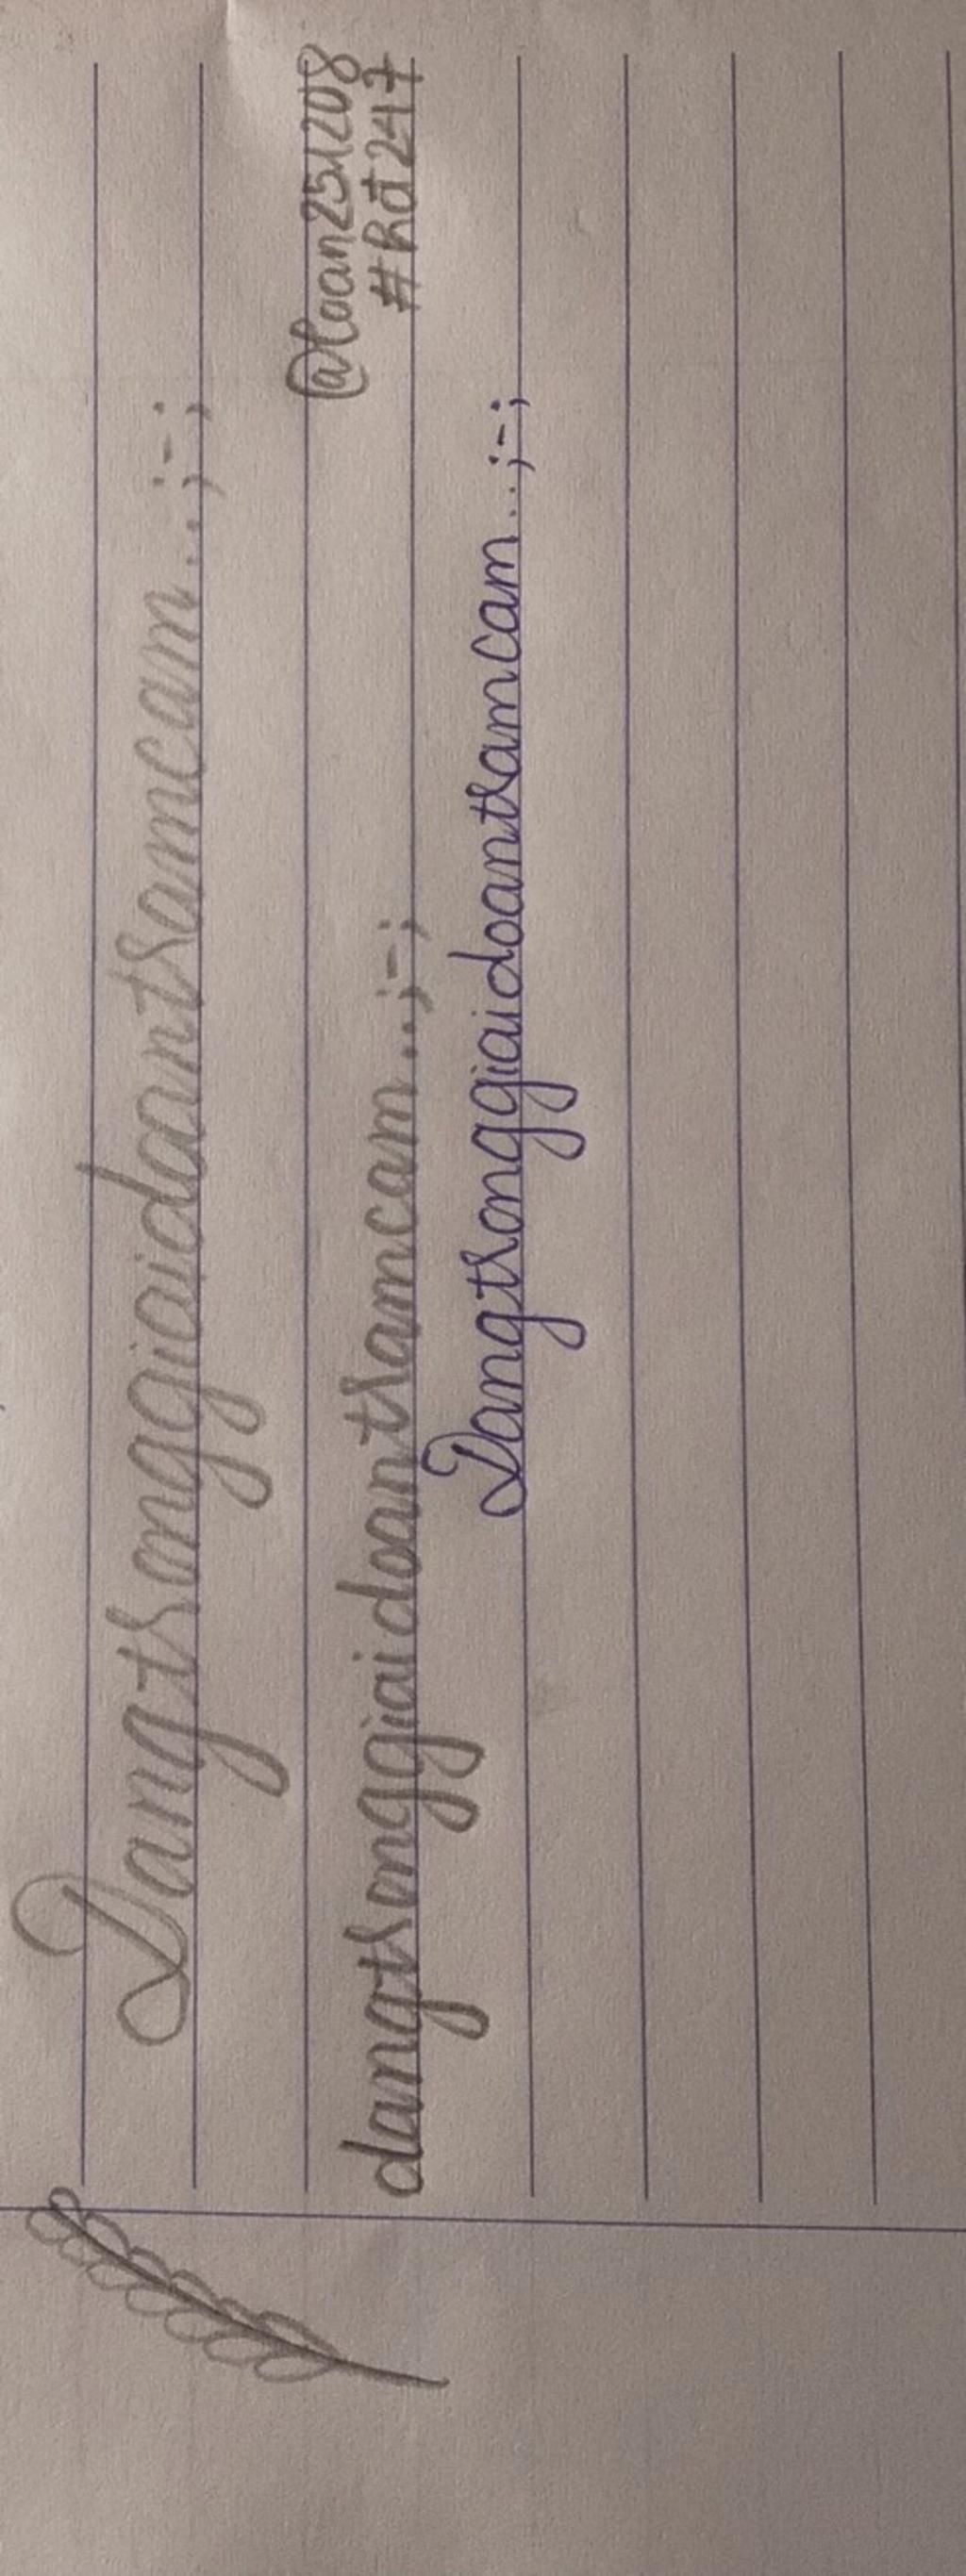 Dangtronggiaidoantramcam...;-;
@loan251208
#hđ247
dangtronggiaidoantramcam...;-;
Dangtronggiaidoantramcam...;-;